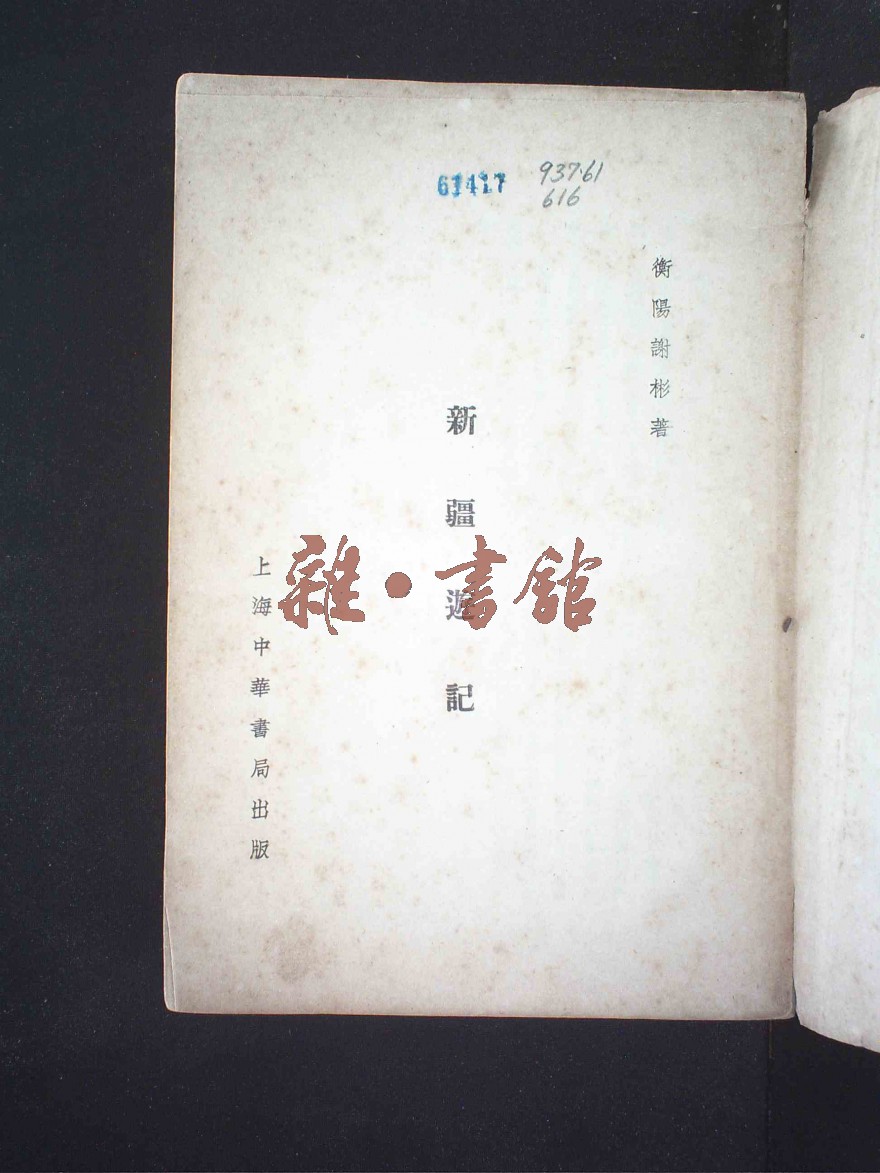 61417
937·61
616
衡陽謝彬著
新疆遊記
上海中華書局出版
雜·書館